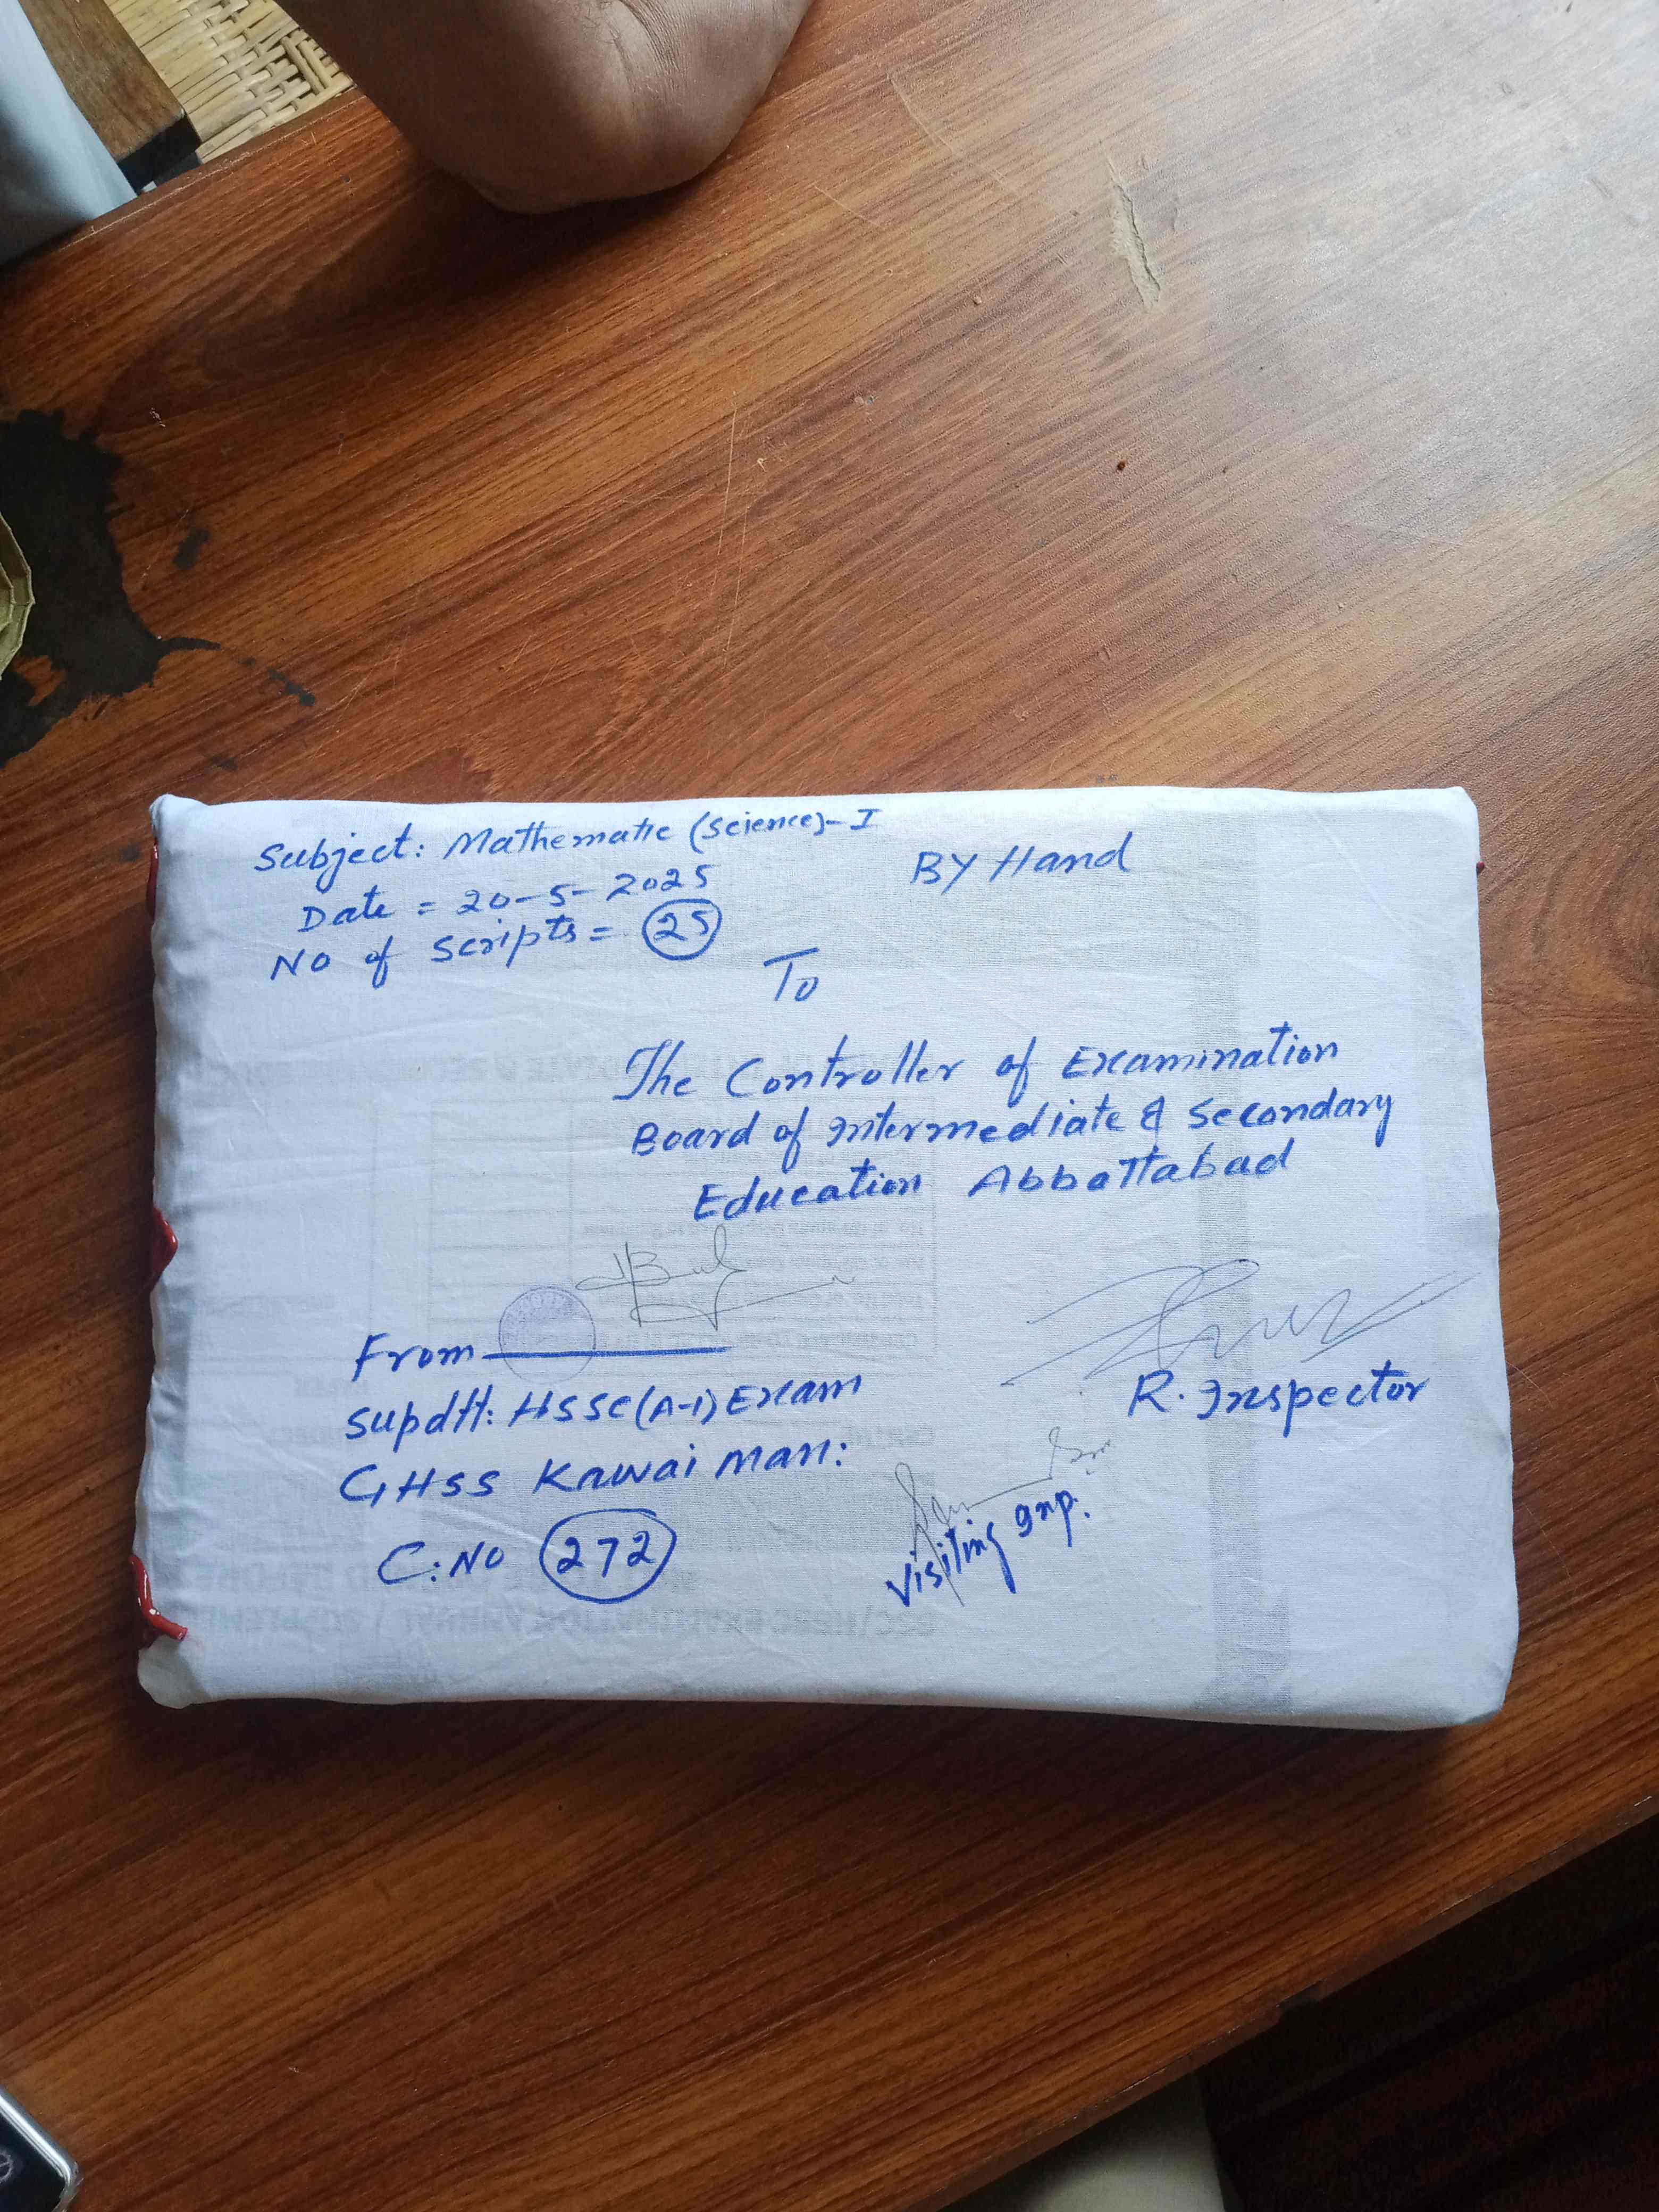 Subject: Mathematic (Science)-I
BY Hand
Date = 20-5-2025
No of Scripts = 25
To
The Controller of Examination
Board of Intermediate & Secondary
Education Abbottabad
From
Supdtt: HSSC(A-1) Exam
GHSS Kawai Man:
C: No 272
R. Inspector
Visiting Inp.